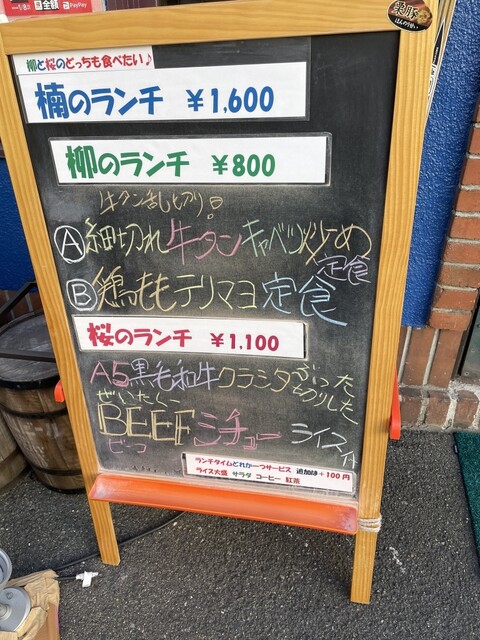 全額
PayPay
柔豚
柳と桜のどっちも食べたい♪
楠のランチ ￥1,600
柳のランチ ￥800
牛タン乱切り!
Ⓐ細切れ牛タンキャベツ炒め
定食
Ⓑ鶏ももテリマヨ定食
桜のランチ ￥1,100
A5黒毛和牛クラシタぶった
切りした
ぜいたくー
BEEFシチュー ライス付
ビーフ
ランチタイムどれか一つサービス 追加は+100円
ライス大盛 サラダ コーヒー 紅茶